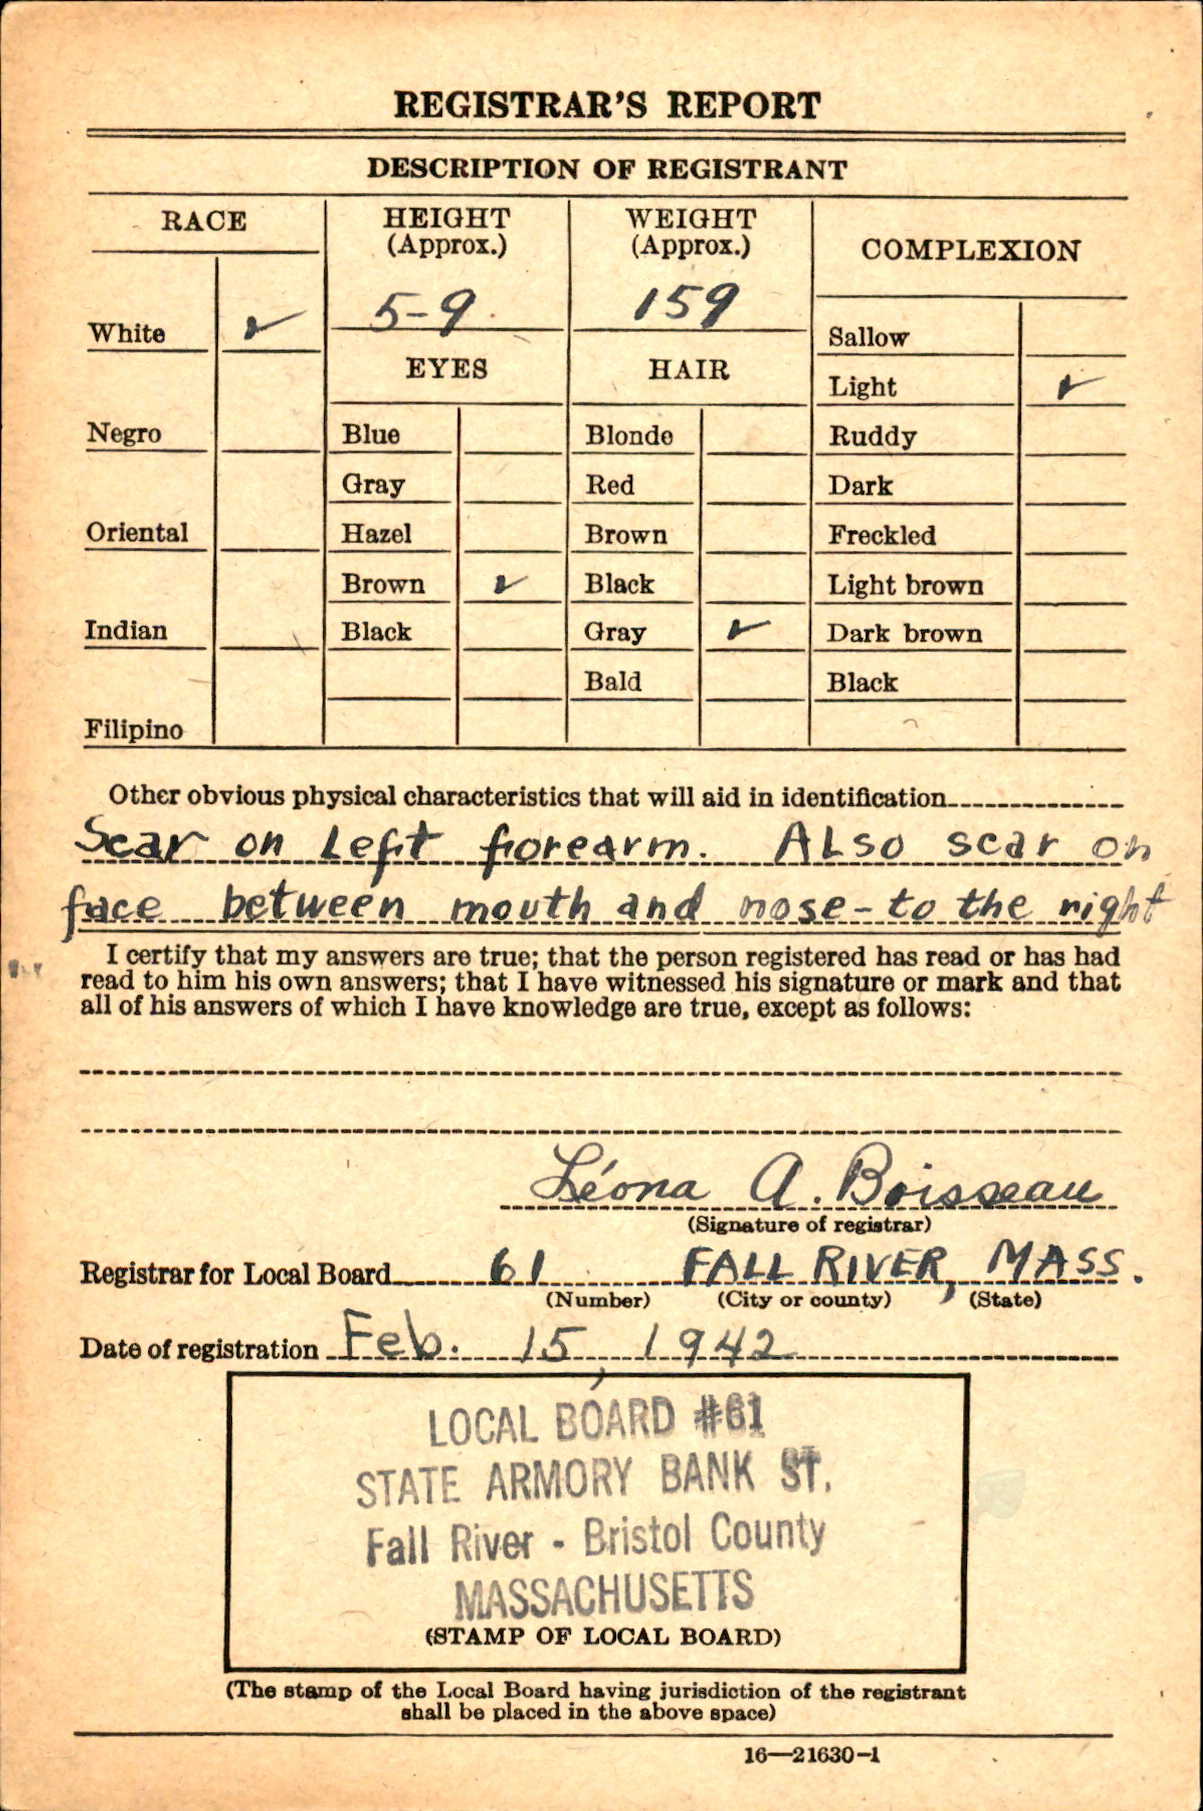 REGISTRAR'S REPORT
DESCRIPTION OF REGISTRANT
RACE
HEIGHT
(Approx.)
WEIGHT
(Approx.)
COMPLEXION
5-9
159
White ✓
Sallow
EYES
HAIR
Light ✓
Negro
Blue
Blonde
Ruddy
Gray
Red
Dark
Oriental
Hazel
Brown
Freckled
Brown ✓
Black
Light brown
Indian
Black
Gray ✓
Dark brown
Bald
Black
Filipino
Other obvious physical characteristics that will aid in identification
Scar on Left forearm. Also scar on
face between mouth and nose - to the right
I certify that my answers are true; that the person registered has read or has had
read to him his own answers; that I have witnessed his signature or mark and that
all of his answers of which I have knowledge are true, except as follows:
Léona A. Boisseau
(Signature of registrar)
Registrar for Local Board 61 FALL RIVER, MASS.
(Number) (City or county) (State)
Date of registration Feb. 15, 1942
LOCAL BOARD #61
STATE ARMORY BANK ST.
Fall River - Bristol County
MASSACHUSETTS
(STAMP OF LOCAL BOARD)
(The stamp of the Local Board having jurisdiction of the registrant
shall be placed in the above space)
16—21630-1